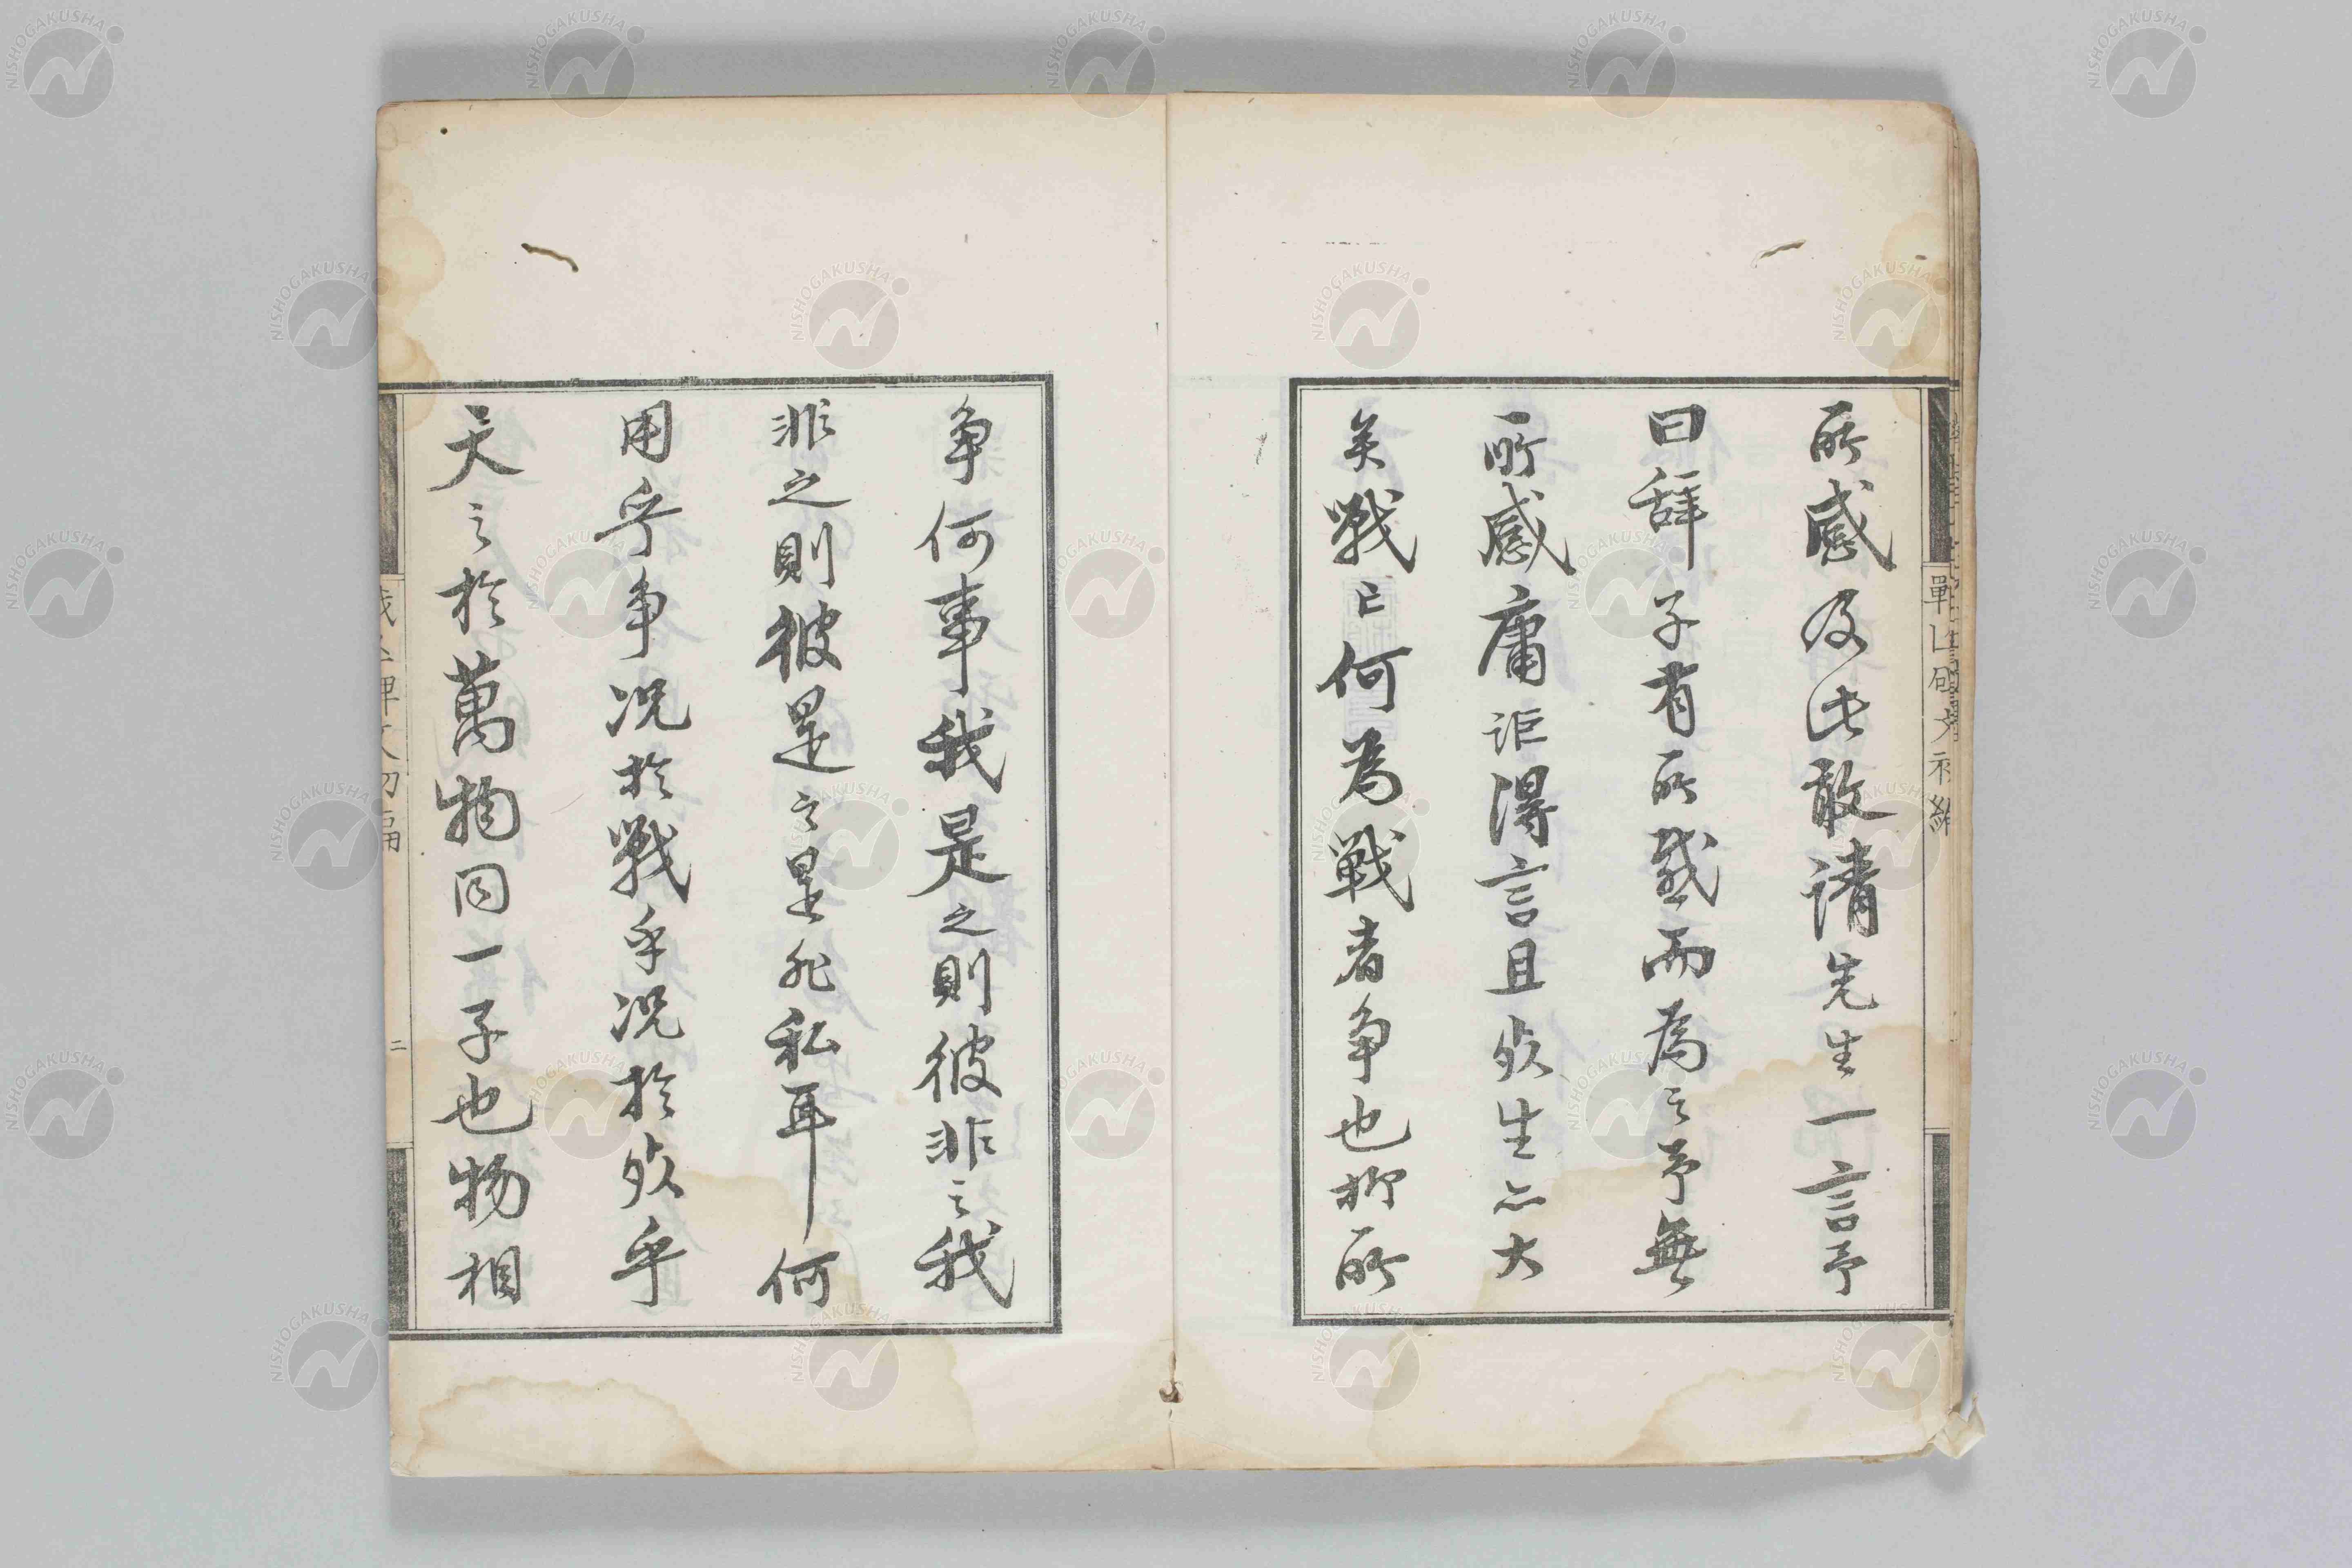 所感及此敢請先生一言予
曰辭子有所感而為之予無
所感庸詎得言且死生亦大
矣戰亡何為戰者爭也抑所
爭何事我是之則彼非之我
非之則彼是之是非私耳何
用乎爭況於戰乎況於死乎
天之於萬物同一子也物相
二
NISHOGAKUSHA